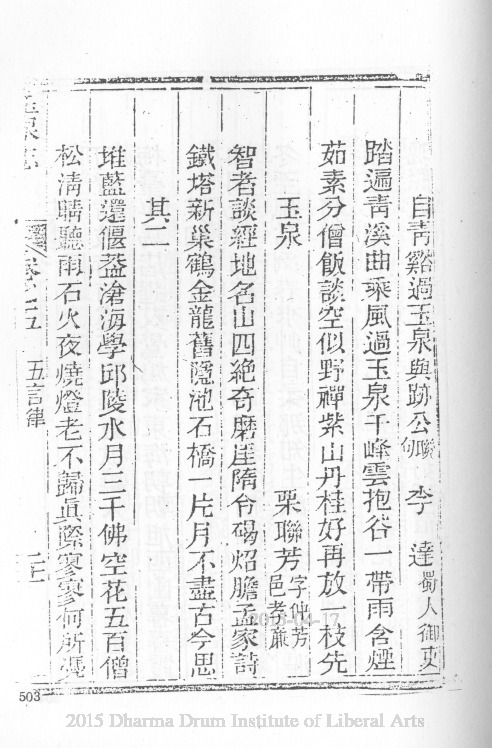 自青谿過玉泉與跡公聯句 李達蜀人御史
踏遍青溪曲乘風過玉泉千峰雲抱谷一帶雨含煙
茹素分僧飯談空似野禪紫山丹桂好再放一枝先
玉泉 栗聯芳字仲芳邑孝廉
智者談經地名山四絕奇磨崖隋令碣炤膽孟家詩
鐵塔新巢鶴金龍舊隱池石橋一片月不盡古今思
其二
堆藍還偃葢滄海學邱陵水月三千佛空花五百僧
松清晴聽雨石火夜燒燈老不歸真際寥寥何所憑
玉泉志 卷之五 五言律
503
2015-04-17
2015 Dharma Drum Institute of Liberal Arts